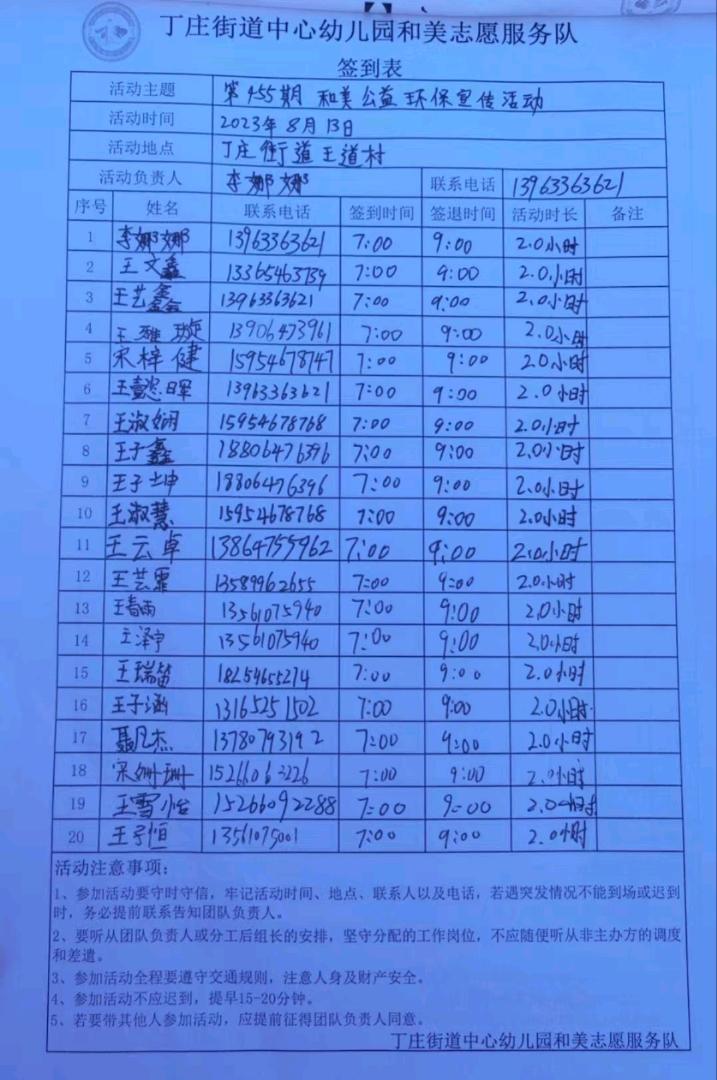 丁庄街道中心幼儿园和美志愿服务队
签到表
活动主题 第455期 和美公益环保宣传活动
活动时间 2023年8月13日
活动地点 丁庄街道王道村
活动负责人 李娜娜 联系电话 13963363621
序号 姓名 联系电话 签到时间 签退时间 活动时长 备注
1 李娜娜 13963363621 7:00 9:00 2.0小时
2 王文鑫 13365463739 7:00 9:00 2.0小时
3 王艺鑫 13963363621 7:00 9:00 2.0小时
4 王雅璇 13906473961 7:00 9:00 2.0小时
5 宋梓健 15954678747 7:00 9:00 2.0小时
6 王懿晖 13963363621 7:00 9:00 2.0小时
7 王淑娴 15954678768 7:00 9:00 2.0小时
8 王子鑫 18806476396 7:00 9:00 2.0小时
9 王子坤 18806476396 7:00 9:00 2.0小时
10 王淑慧 15954678768 7:00 9:00 2.0小时
11 王云卓 13864755962 7:00 9:00 2.0小时
12 王芸霏 13589962655 7:00 9:00 2.0小时
13 王春雨 13561075940 7:00 9:00 2.0小时
14 王泽宇 13561075940 7:00 9:00 2.0小时
15 王瑞笛 18254655274 7:00 9:00 2.0小时
16 王子涵 13165251502 7:00 9:00 2.0小时
17 聂凡杰 13780793192 7:00 9:00 2.0小时
18 宋姗珊 15266063226 7:00 9:00 2.0小时
19 王雪怡 15266092288 7:00 9:00 2.0小时
20 王子恒 13561075001 7:00 9:00 2.0小时
活动注意事项：
1、参加活动要守时守信，牢记活动时间、地点、联系人以及电话，若遇突发情况不能到场或迟到
时，务必提前联系告知团队负责人。
2、要听从团队负责人或分工后组长的安排，坚守分配的工作岗位，不应随便听从非主办方的调度
和差遣。
3、参加活动全程要遵守交通规则，注意人身及财产安全。
4、参加活动不应迟到，提早15-20分钟。
5、若要带其他人参加活动，应提前征得团队负责人同意。
丁庄街道中心幼儿园和美志愿服务队